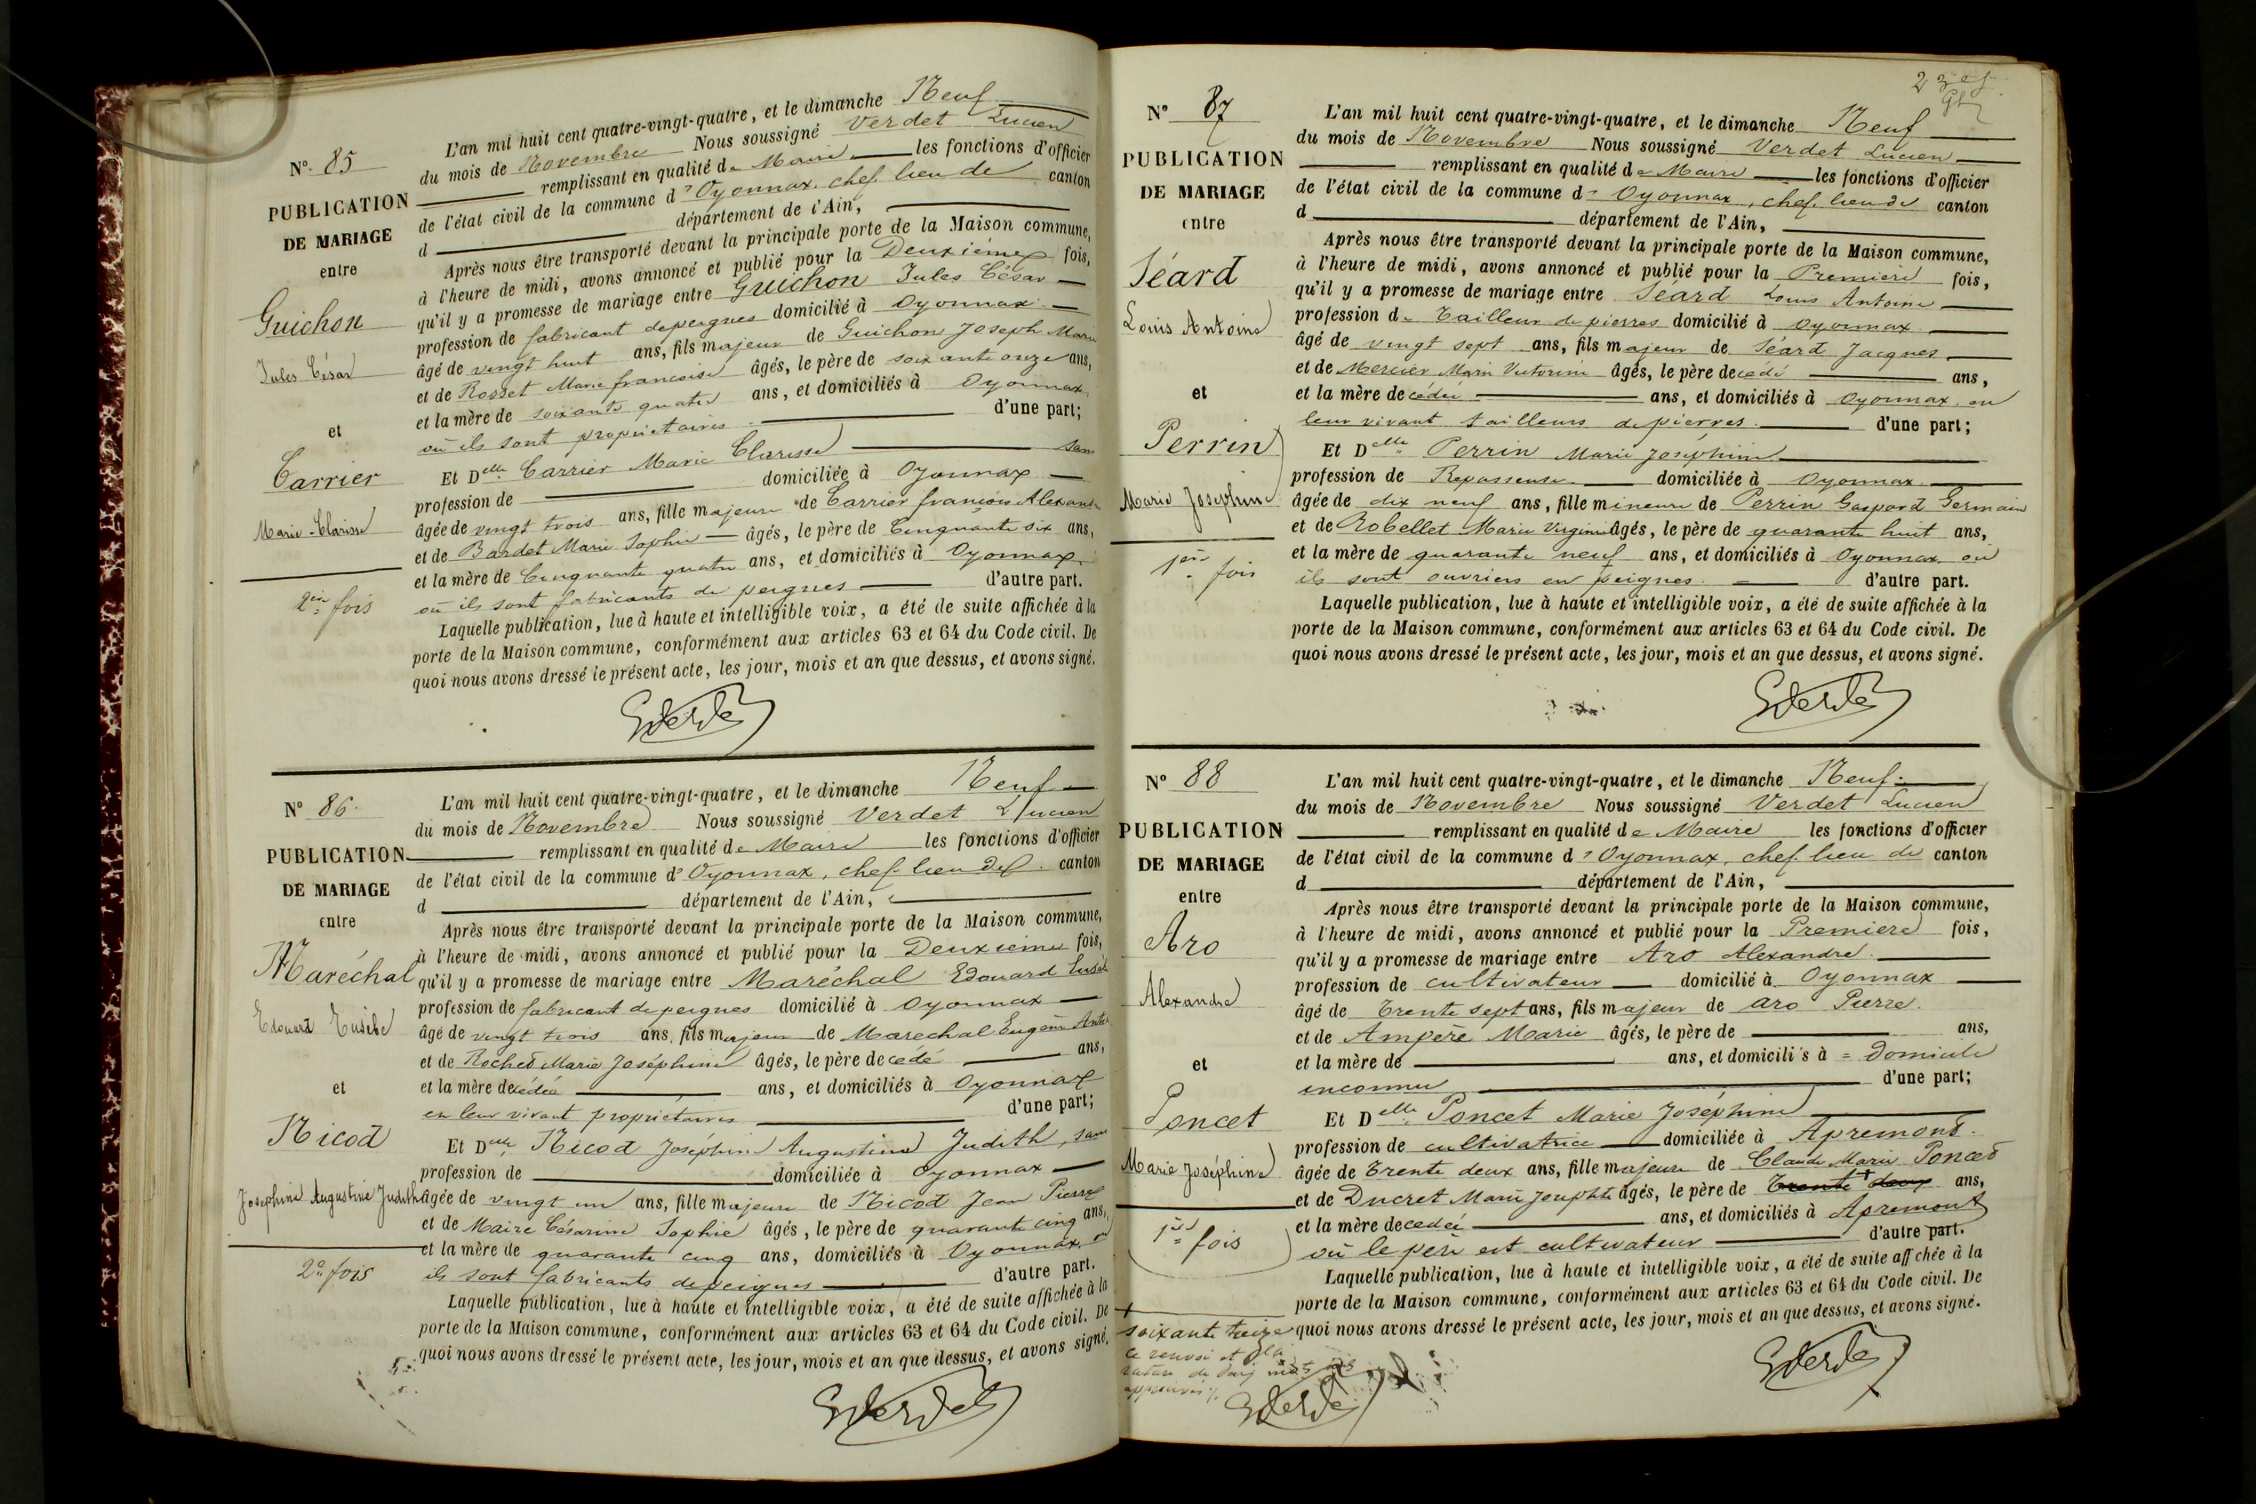 N° 85
PUBLICATION
DE MARIAGE
entre
Guichon
Jules César
et
Carrier
Marie-Clarisse
2me fois
L'an mil huit cent quatre-vingt-quatre, et le dimanche Neuf
du mois de Novembre Nous soussigné Verdet Lucien
remplissant en qualité de Maire les fonctions d'officier
de l'état civil de la commune d'Oyonnax, chef-lieu de canton
d département de l'Ain,
Après nous être transporté devant la principale porte de la Maison commune,
à l'heure de midi, avons annoncé et publié pour la Deuxième fois,
qu'il y a promesse de mariage entre Guichon Jules César
profession de fabricant de peignes domicilié à Oyonnax
âgé de vingt huit ans, fils majeur de Guichon Joseph Marie
et de Rosset Marie françoise âgés, le père de soixante onze ans,
et la mère de soixante quatre ans, et domiciliés à Oyonnax
où ils sont propriétaires d'une part;
Et Delle Carrier Marie Clarisse sans
profession de domiciliée à Oyonnax
âgée de vingt trois ans, fille majeure de Carrier françois Alexandre
et de Bardet Marie Sophie âgés, le père de Cinquante six ans,
et la mère de Cinquante quatre ans, et domiciliés à Oyonnax,
où ils sont fabricants de peignes d'autre part.
Laquelle publication, lue à haute et intelligible voix, a été de suite affichée à la
porte de la Maison commune, conformément aux articles 63 et 64 du Code civil. De
quoi nous avons dressé le présent acte, les jour, mois et an que dessus, et avons signé.
N° 86
PUBLICATION
DE MARIAGE
entre
Maréchal
Edouard Eusèbe
et
Nicod
Joséphine Augustine Judith
2e fois
L'an mil huit cent quatre-vingt-quatre, et le dimanche Neuf
du mois de Novembre Nous soussigné Verdet Lucien
remplissant en qualité de Maire les fonctions d'officier
de l'état civil de la commune d'Oyonnax, chef-lieu de canton
d département de l'Ain,
Après nous être transporté devant la principale porte de la Maison commune,
à l'heure de midi, avons annoncé et publié pour la Deuxième fois,
qu'il y a promesse de mariage entre Maréchal Edouard Eusèbe
profession de fabricant de peignes domicilié à Oyonnax
âgé de vingt trois ans, fils majeur de Maréchal Eugène
et de Rochet Marie Joséphine âgés, le père décédé ans,
et la mère décédée ans, et domiciliés à Oyonnax
en leur vivant propriétaires d'une part;
Et Delle Nicod Joséphine Augustine Judith, sans
profession de domiciliée à Oyonnax
âgée de vingt un ans, fille majeure de Nicod Jean Pierre
et de Maire Césarine Sophie âgés, le père de quarante cinq ans,
et la mère de quarante cinq ans, domiciliés à Oyonnax, où
ils sont fabricants de peignes d'autre part.
Laquelle publication, lue à haute et intelligible voix, a été de suite affichée à la
porte de la Maison commune, conformément aux articles 63 et 64 du Code civil. De
quoi nous avons dressé le présent acte, les jour, mois et an que dessus, et avons signé.
N° 87
PUBLICATION
DE MARIAGE
entre
Séard
Louis Antoine
et
Perrin
Marie Joséphine
1re fois
L'an mil huit cent quatre-vingt-quatre, et le dimanche Neuf
du mois de Novembre Nous soussigné Verdet Lucien
remplissant en qualité de Maire les fonctions d'officier
de l'état civil de la commune d'Oyonnax, chef-lieu de canton
d département de l'Ain,
Après nous être transporté devant la principale porte de la Maison commune,
à l'heure de midi, avons annoncé et publié pour la Première fois,
qu'il y a promesse de mariage entre Séard Louis Antoine
profession de Tailleur de pierres domicilié à Oyonnax
âgé de vingt sept ans, fils majeur de Séard Jacques
et de Mercier Marie Victorine âgés, le père décédé ans,
et la mère décédée ans, et domiciliés à Oyonnax en
leur vivant tailleurs de pierres. d'une part;
Et Delle Perrin Marie Joséphine
profession de Repasseuse domiciliée à Oyonnax
âgée de dix neuf ans, fille mineure de Perrin Gaspard Germain
et de Robellet Marie Virginie âgés, le père de quarante huit ans,
et la mère de quarante neuf ans, et domiciliés à Oyonnax où
ils sont ouvriers en peignes. d'autre part.
Laquelle publication, lue à haute et intelligible voix, a été de suite affichée à la
porte de la Maison commune, conformément aux articles 63 et 64 du Code civil. De
quoi nous avons dressé le présent acte, les jour, mois et an que dessus, et avons signé.
N° 88
PUBLICATION
DE MARIAGE
entre
Aro
Alexandre
et
Poncet
Marie Joséphine
1re fois
L'an mil huit cent quatre-vingt-quatre, et le dimanche Neuf
du mois de Novembre Nous soussigné Verdet Lucien
remplissant en qualité de Maire les fonctions d'officier
de l'état civil de la commune d'Oyonnax, chef-lieu de canton
d département de l'Ain,
Après nous être transporté devant la principale porte de la Maison commune,
à l'heure de midi, avons annoncé et publié pour la Première fois,
qu'il y a promesse de mariage entre Aro Alexandre
profession de cultivateur domicilié à Oyonnax
âgé de Trente sept ans, fils majeur de Aro Pierre
et de Ampère Marie âgés, le père de ans,
et la mère de ans, et domiciliés à = domicile
inconnu d'une part;
Et Delle Poncet Marie Joséphine
profession de cultivatrice domiciliée à Apremont
âgée de Trente deux ans, fille majeure de Claude Marie Poncet
et de Ducret Marie Josephte âgés, le père de Trente deux + ans,
et la mère décédée ans, et domiciliés à Apremont
où le père est cultivateur d'autre part.
Laquelle publication, lue à haute et intelligible voix, a été de suite affichée à la
porte de la Maison commune, conformément aux articles 63 et 64 du Code civil. De
quoi nous avons dressé le présent acte, les jour, mois et an que dessus, et avons signé.
+
soixante treize
ce renvoi et la
rature de deux mots
approuvés